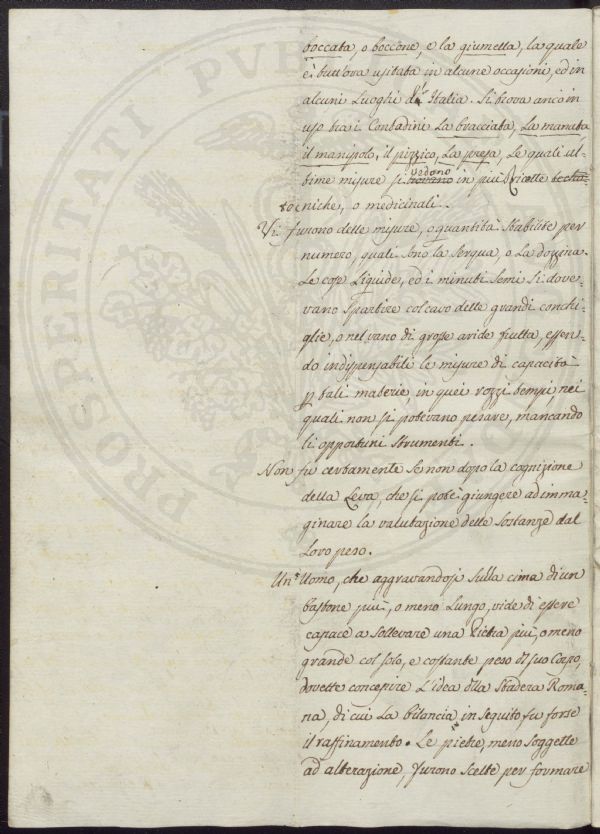 boccata, o boccone, e la giumetta, la quale
è tutt'ora usitata in alcune occasioni, ed in
alcuni Luoghi d'Italia. Si trova anco in
uso tra i Contadini La bracciata, La manata
il manipolo, il pizzico, La presa, Le quali ul-
time misure si trovano vedono in più Ricette tech-
niche, o medicinali.
Vi furono delle misure, o quantità stabilite per
numero, quali sono la serqua, o La dozzina.
Le cose Liquide, ed i minuti semi si dove-
vano spartire col cavo delle grandi conchi-
glie, o nel vano di grosse aride frutta, essen-
do indispensabili le misure di capacità
p tali materie, in quei rozzi tempi, nei
quali non si potevano pesare, mancando
li opportuni strumenti.
Non fu certamente se non dopo la cognizione
della Leva, che si potè giungere ad imma-
ginare la valutazione delle sostanze dal
Loro peso.
Un' Uomo, che aggravandosi sulla cima di un
bastone più, o meno Lungo, vide di essere
capace a sollevare una Pietra più, o meno
grande col solo, e costante peso del suo Corpo,
dovette concepire L'idea della stadera Roma-
na, di cui La bilancia in seguito fu forse
il raffinamento. Le pietre, meno soggette
ad alterazione, furono scelte per formare
PROSPERITATI PVBL